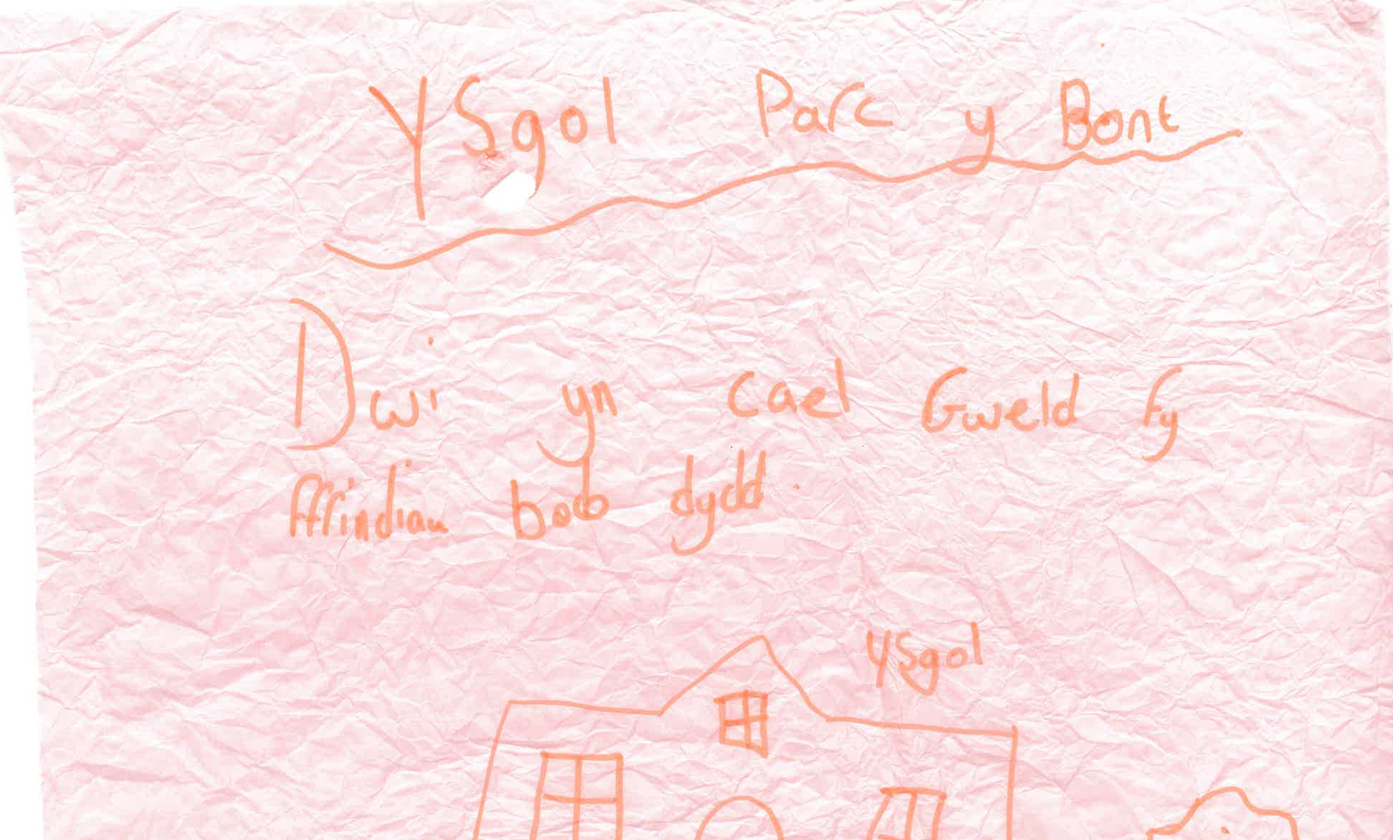 Ysgol Parc y Bont
Dwi yn cael Gweld fy
ffrindiau bob dydd.
Ysgol